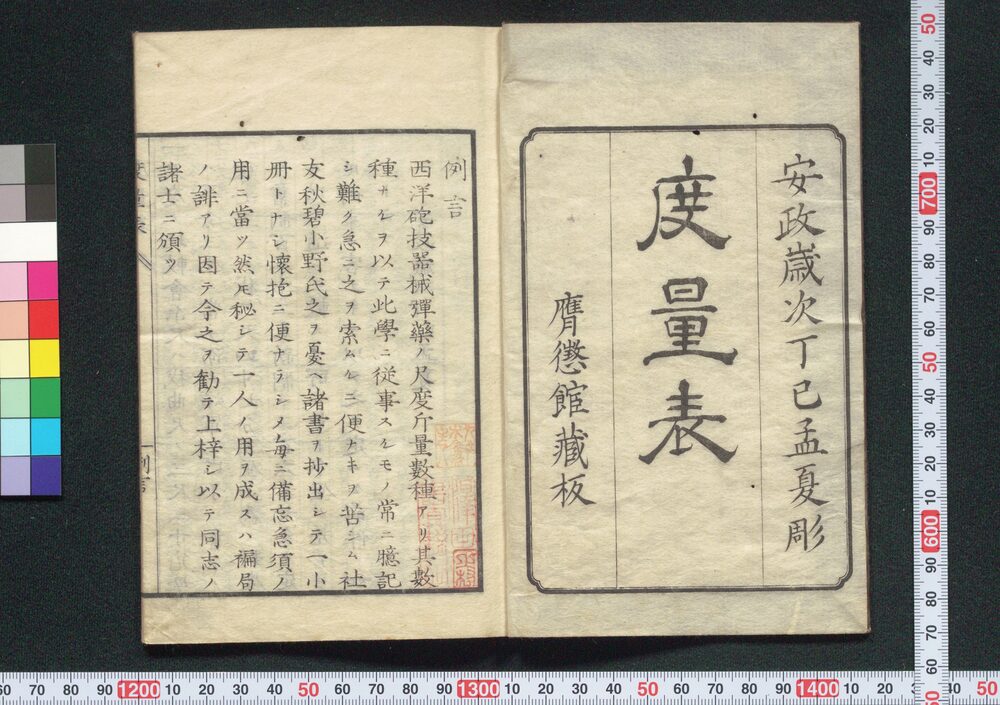 安政歳次丁巳孟夏彫
度量表
膺懲館藏板
例言
西洋砲技器械彈藥ノ尺度斤量數種アリ其數
種ナルヲ以テ此學ニ從事スルモノ常ニ臆記
シ難ク急ニ之ヲ索ムルニ便ナキヲ苦シム社
友秋碧小野氏之ヲ憂ヘ諸書ヲ抄出シテ一小
冊トナシ懷抱ニ便ナラシメ毎ニ備忘急須ノ
用ニ當ツ然モ秘シテ一人ノ用ヲ成スハ褊局
ノ誹アリ因テ今之ヲ勸テ上梓シ以テ同志ノ
諸士ニ頒ツ
60 70 80 90 1200 10 20 30 40 50 60 70 80 90 1300 10 20 30 40 50 60 70 80 90 1400 10 20 30 40 50
50 40 30 20 10 700 90 80 70 60 50 40 30 20 10 600 90 80 70 60 50